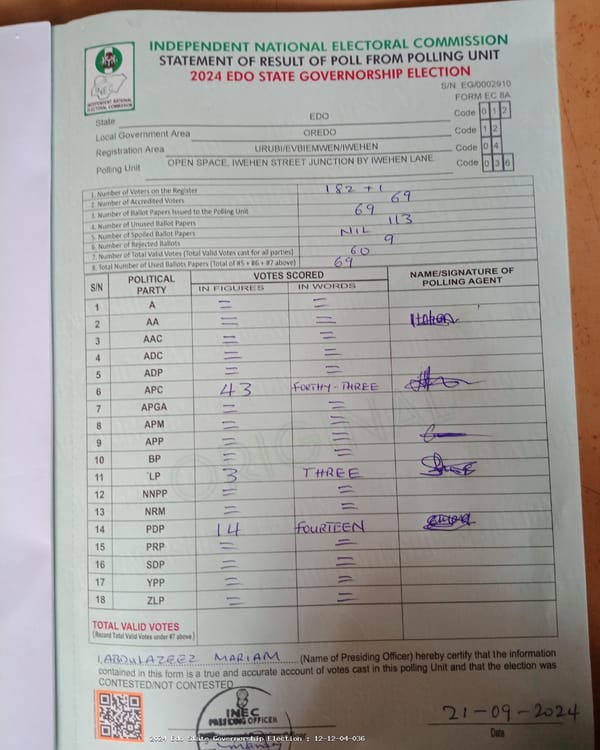 INDEPENDENT NATIONAL ELECTORAL COMMISSION
STATEMENT OF RESULT OF POLL FROM POLLING UNIT
2024 EDO STATE GOVERNORSHIP ELECTION
INEC
INDEPENDENT NATIONAL ELECTORAL COMMISSION
S/N EG/0002910
FORM EC 8A
State EDO Code 0 1 2
Local Government Area OREDO Code 1 2
Registration Area URUBI/EVBIEMWEN/IWEHEN Code 0 4
Polling Unit OPEN SPACE, IWEHEN STREET JUNCTION BY IWEHEN LANE Code 0 3 6
1. Number of Voters on the Register 182 + 1
2. Number of Accredited Voters 69
3. Number of Ballot Papers Issued to the Polling Unit 69
4. Number of Unused Ballot Papers 113
5. Number of Spoiled Ballot Papers NIL
6. Number of Rejected Ballots 9
7. Number of Total Valid Votes (Total Valid Votes cast for all parties) 60
8. Total Number of Used Ballots Papers (Total of #5 + #6 + #7 above) 69
S/N POLITICAL PARTY VOTES SCORED NAME/SIGNATURE OF POLLING AGENT
IN FIGURES IN WORDS
1 A = =
2 AA = =
3 AAC = =
4 ADC = =
5 ADP = =
6 APC 43 FORTHY-THREE
7 APGA = =
8 APM = =
9 APP = =
10 BP = =
11 LP 3 THREE
12 NNPP = =
13 NRM = =
14 PDP 14 FOURTEEN
15 PRP = =
16 SDP = =
17 YPP = =
18 ZLP = =
TOTAL VALID VOTES
(Record Total Valid Votes under #7 above)
I, ABDULAZEEZ MARIAM (Name of Presiding Officer) hereby certify that the information
contained in this form is a true and accurate account of votes cast in this polling Unit and that the election was
CONTESTED/NOT CONTESTED
INEC
PRESIDING OFFICER
21-09-2024
Date
2024 Edo State Governorship Election : 12-12-04-036